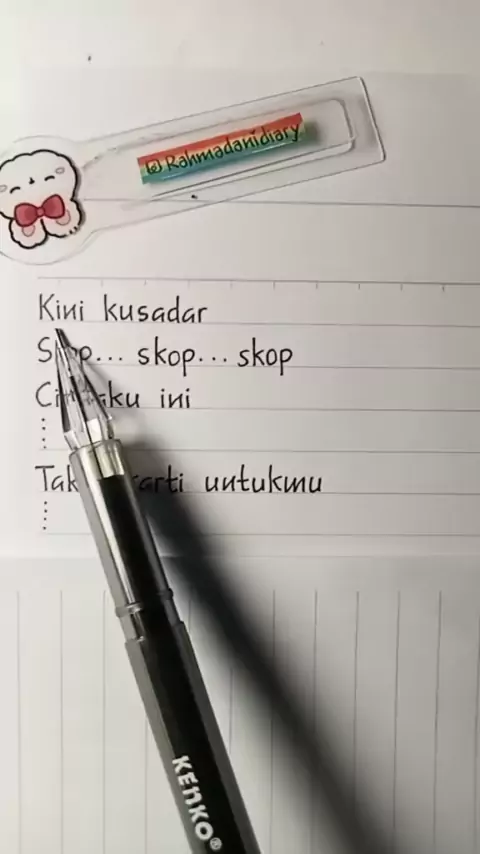 @Rahmadanidiary
Kini kusadar
skop... skop
ini
⋮
Tak untukmu
⋮
KENKO®